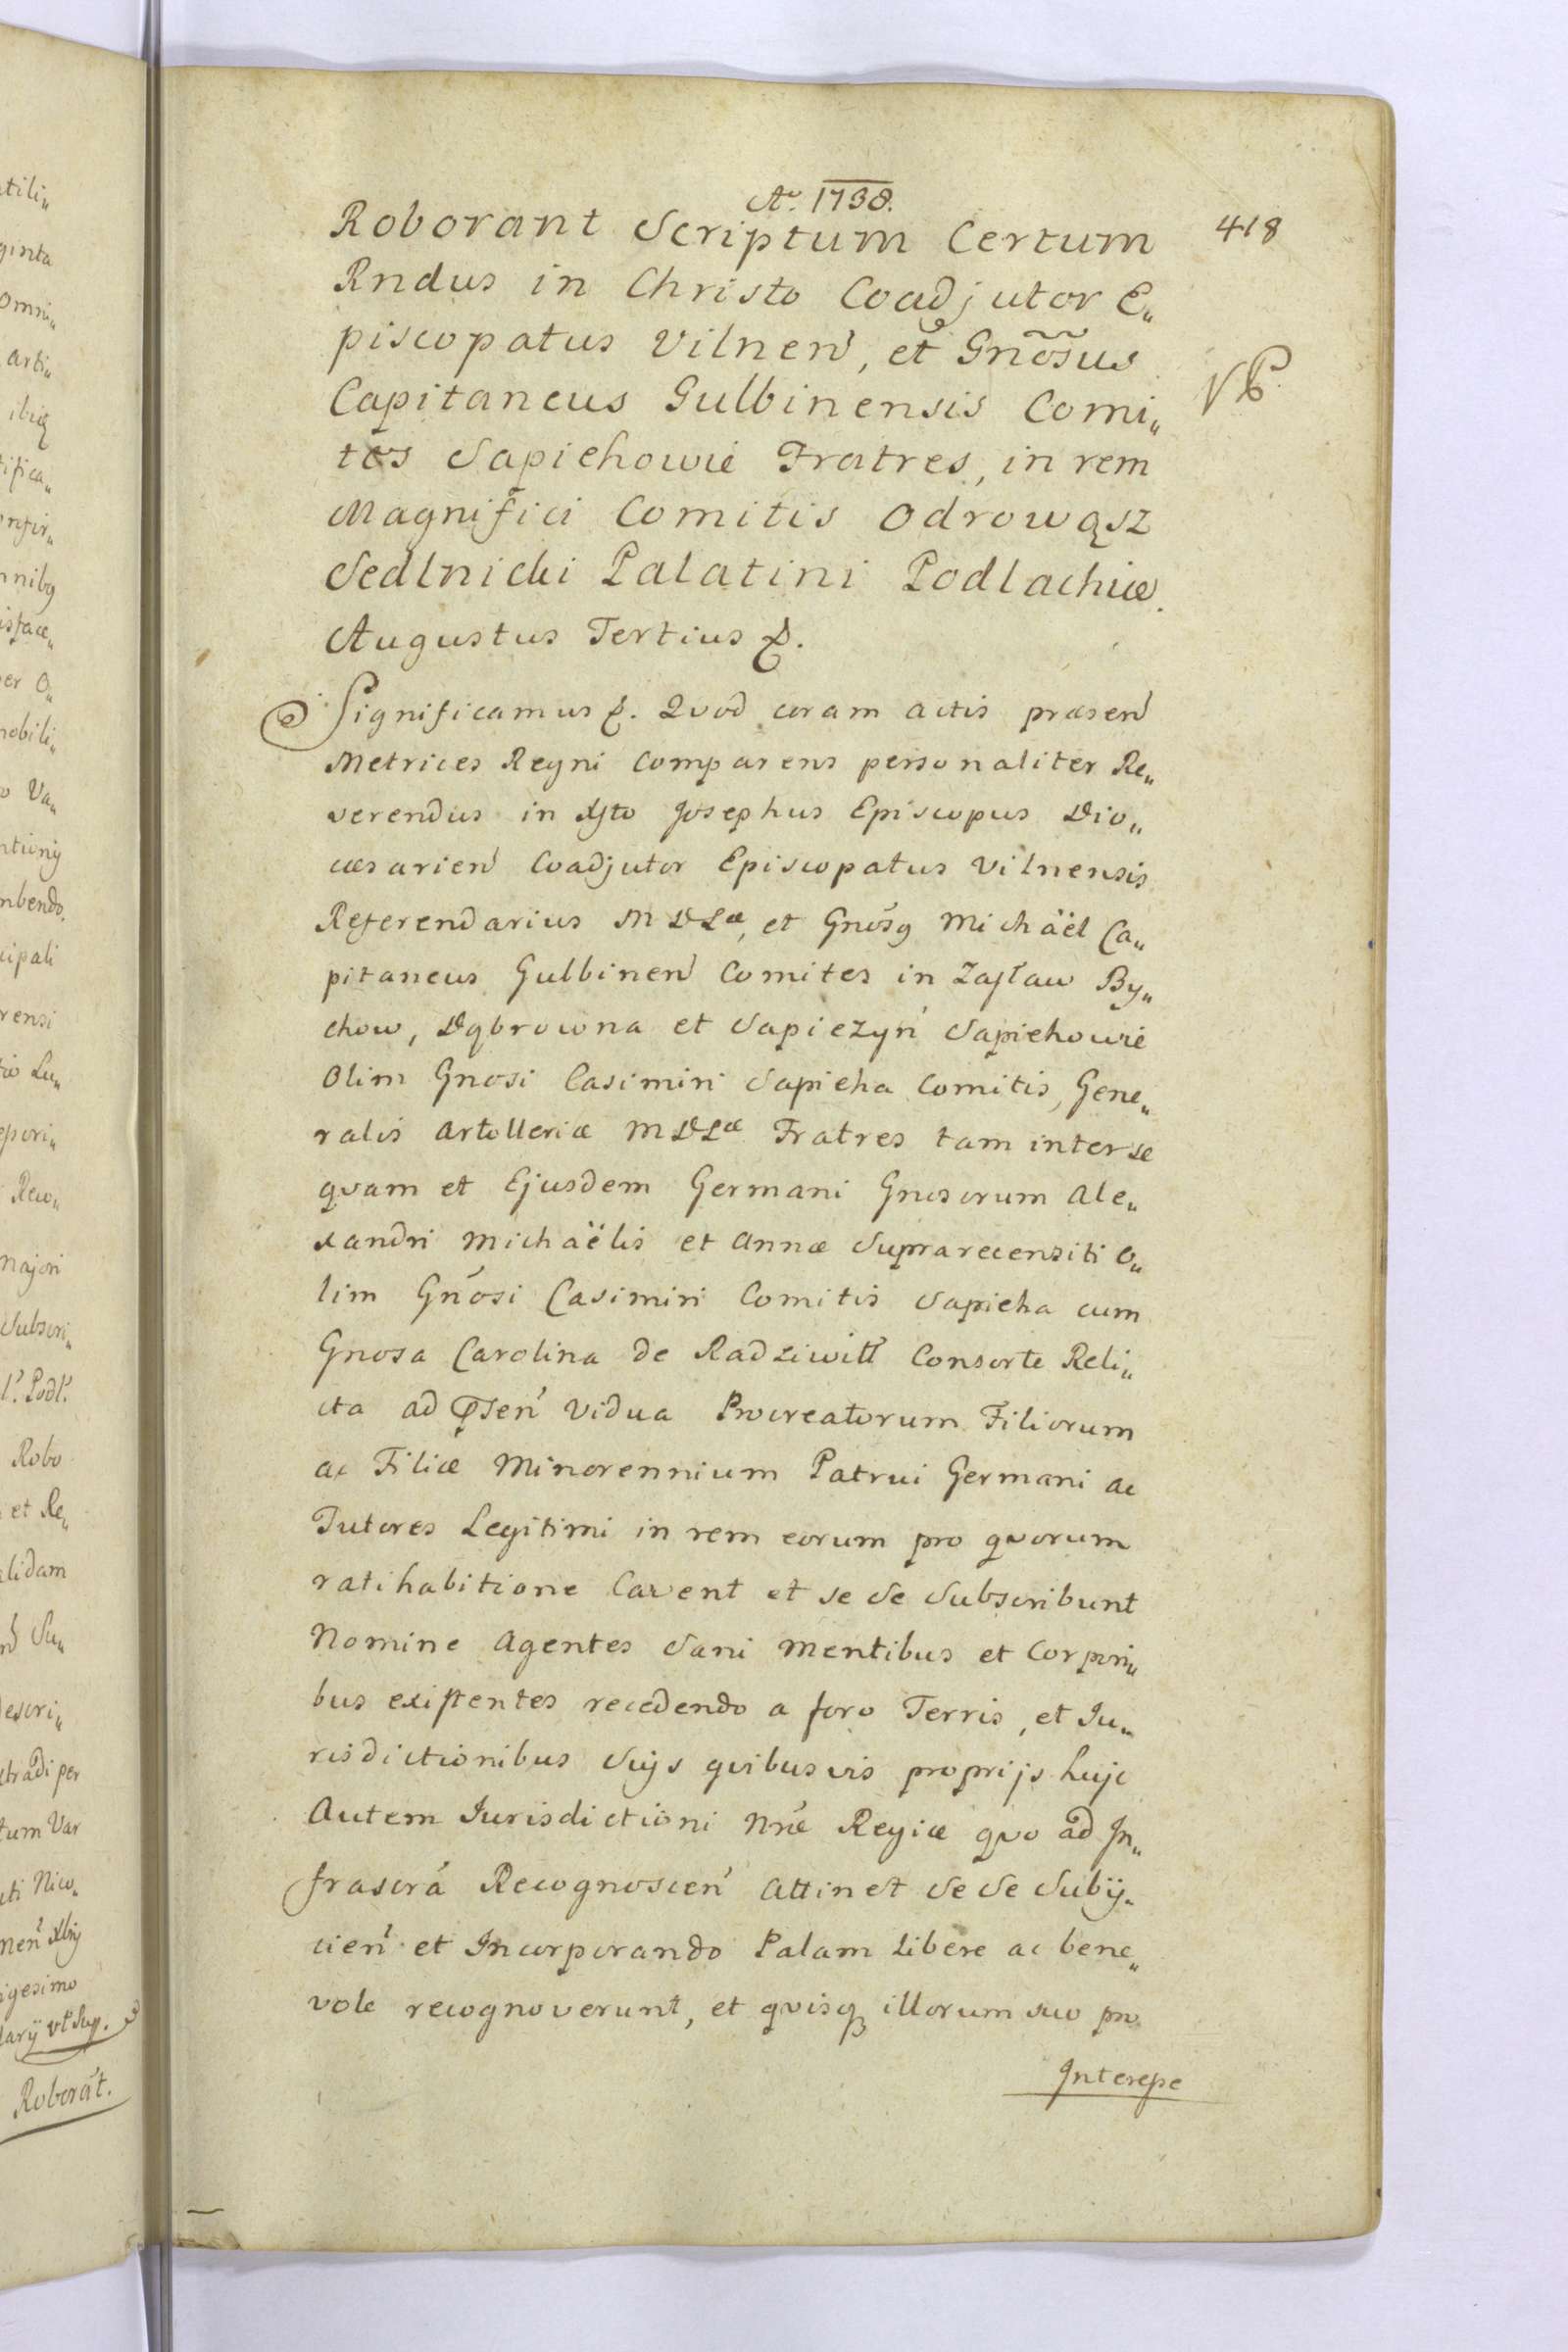 Ao. 1738.
418
Roborant Scriptum Certum
Rndus in Christo Coadjutor E„
piscopatus Vilnen, et Gnosus
Capitaneus Gulbinensis Comi„
tes Sapiehowie Fratres, in rem
Magnifici Comitis Odrowąsz
Sedlnicki Palatini Podlachiæ.
Augustus Tertius &.
Significamus &. Quod coram actis præsen
Metrices Regni Comparens personaliter Re„
verendus in Xsto Josephus Episcopus Dio„
cæsarien Coadjutor Episcopatus Vilnensis
Referendarius M D Læ, et Gnosq Michäel Ca„
pitaneus Gulbinen Comites in Zasław By„
chow, Dąbrowna et Sapiezyn Sapiehowie
Olim Gnosi Casimiri Sapieha Comitis, Gene„
ralis Artolleriæ M D Læ Fratres tam inter se
quam et Ejusdem Germani Gnosorum Ale„
xandri Michaëlis et Annæ Suprarecensiti o„
lim Gnosi Casimiri Comitis Sapieha cum
Gnosa Carolina de Radziwiłł Consorte Reli„
cta ad Psen Vidua Procreatorum Filiorum
ac Filiæ Minorennium Patrui Germani ac
Tutores Legitimi in rem eorum pro quorum
ratihabitione Cavent et se se Subscribunt
Nomine Agentes Sani Mentibus et Corpori„
bus existentes recedendo a foro Terris, et Ju„
risdictionibus Suijs quibusvis proprijs hujc
Autem Jurisdictioni Nræ Regiæ quo ad In„
frascra Recognoscen Attinet se se Subij„
cien et Incorporando Palam Libere ac bene„
vole recognoverunt, et quisq illorum suo pro
Interesse